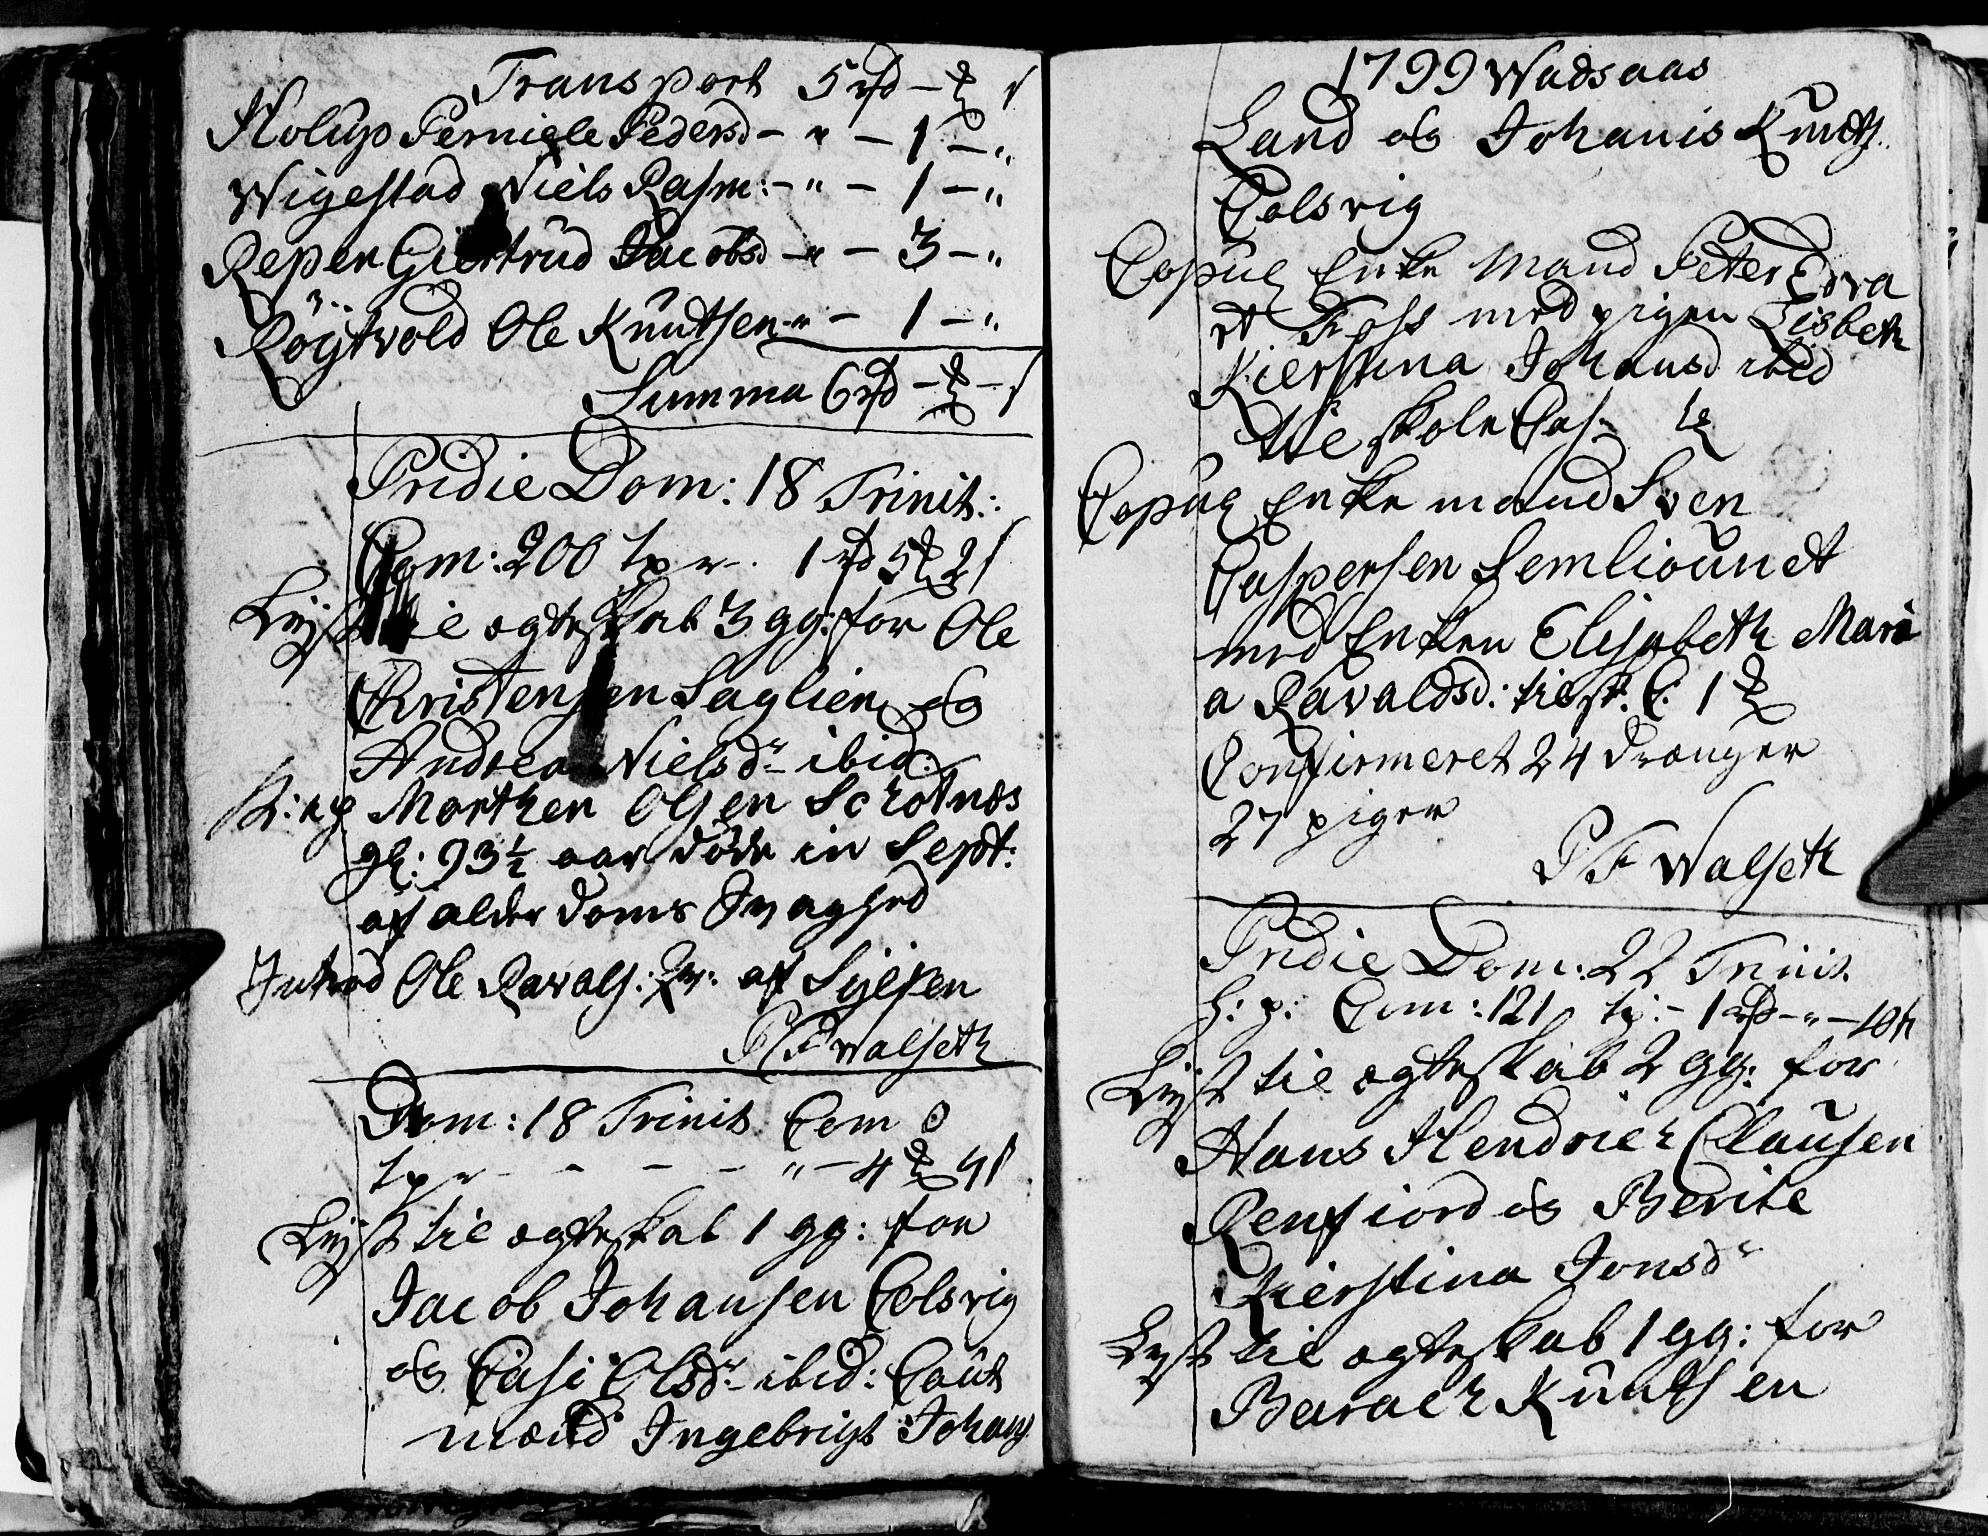 Transport 5 rd -
Holup Perniele Pedersd - " - 1 - "
Wigestad Niels Rasm: - " - 1 - "
Repen Giertrud Jacobsd - " - 3 - "
Røijtvold Ole Knutsen - " - 1 - "
Summa 6 rd
Pridie Dom: 18 Trinit:
Com: 200 tpr. 1 rd 5 2 s
Lyst til ægteskab 3 gg: for Ole
Christensen Saglien og
Andrea Nielsdr ibid:
Morthen Olsen Schotnæs
gl: 93½ aar døde in Sept:
af alderdoms svaghed
Introd Ole Ravals: af Sylsen
P F Walseth
Dom: 18 Trinit Com 0
tpr - - - - " - 4 4 s
Lyst til ægteskab 1 gg: for
Jacob Johansen Colsvig
og Casi Olsdr ibid: Caut
mænd Ingebrigt Johans
1799 Wadsaas
Land og Johanis Knuds.
Colsvig
Copul Enke Mand Peter Edva
rt Foss med pigen Lisbeth
Kierstina Johansd ibid
til skole Cas:
Copul Enkemand Sven
Caspersen Semliounet
med Enken Elisabeth Mari
a Ravaldsd: til sk. C: 1
Confirmeret 24 Drænger
27 piger
P F Walseth
Pridie Dom: 22 Trinit.
H: p: Com: 121 tp: - 1 rd - " - 10 s
Lyst til ægteskab 2 gg: for
Hans Hendrich Clausen
Renfiord og Berite
Kierstina Jonsdr
Lyst til ægteskab 1 gg: for
Barach Knutsen